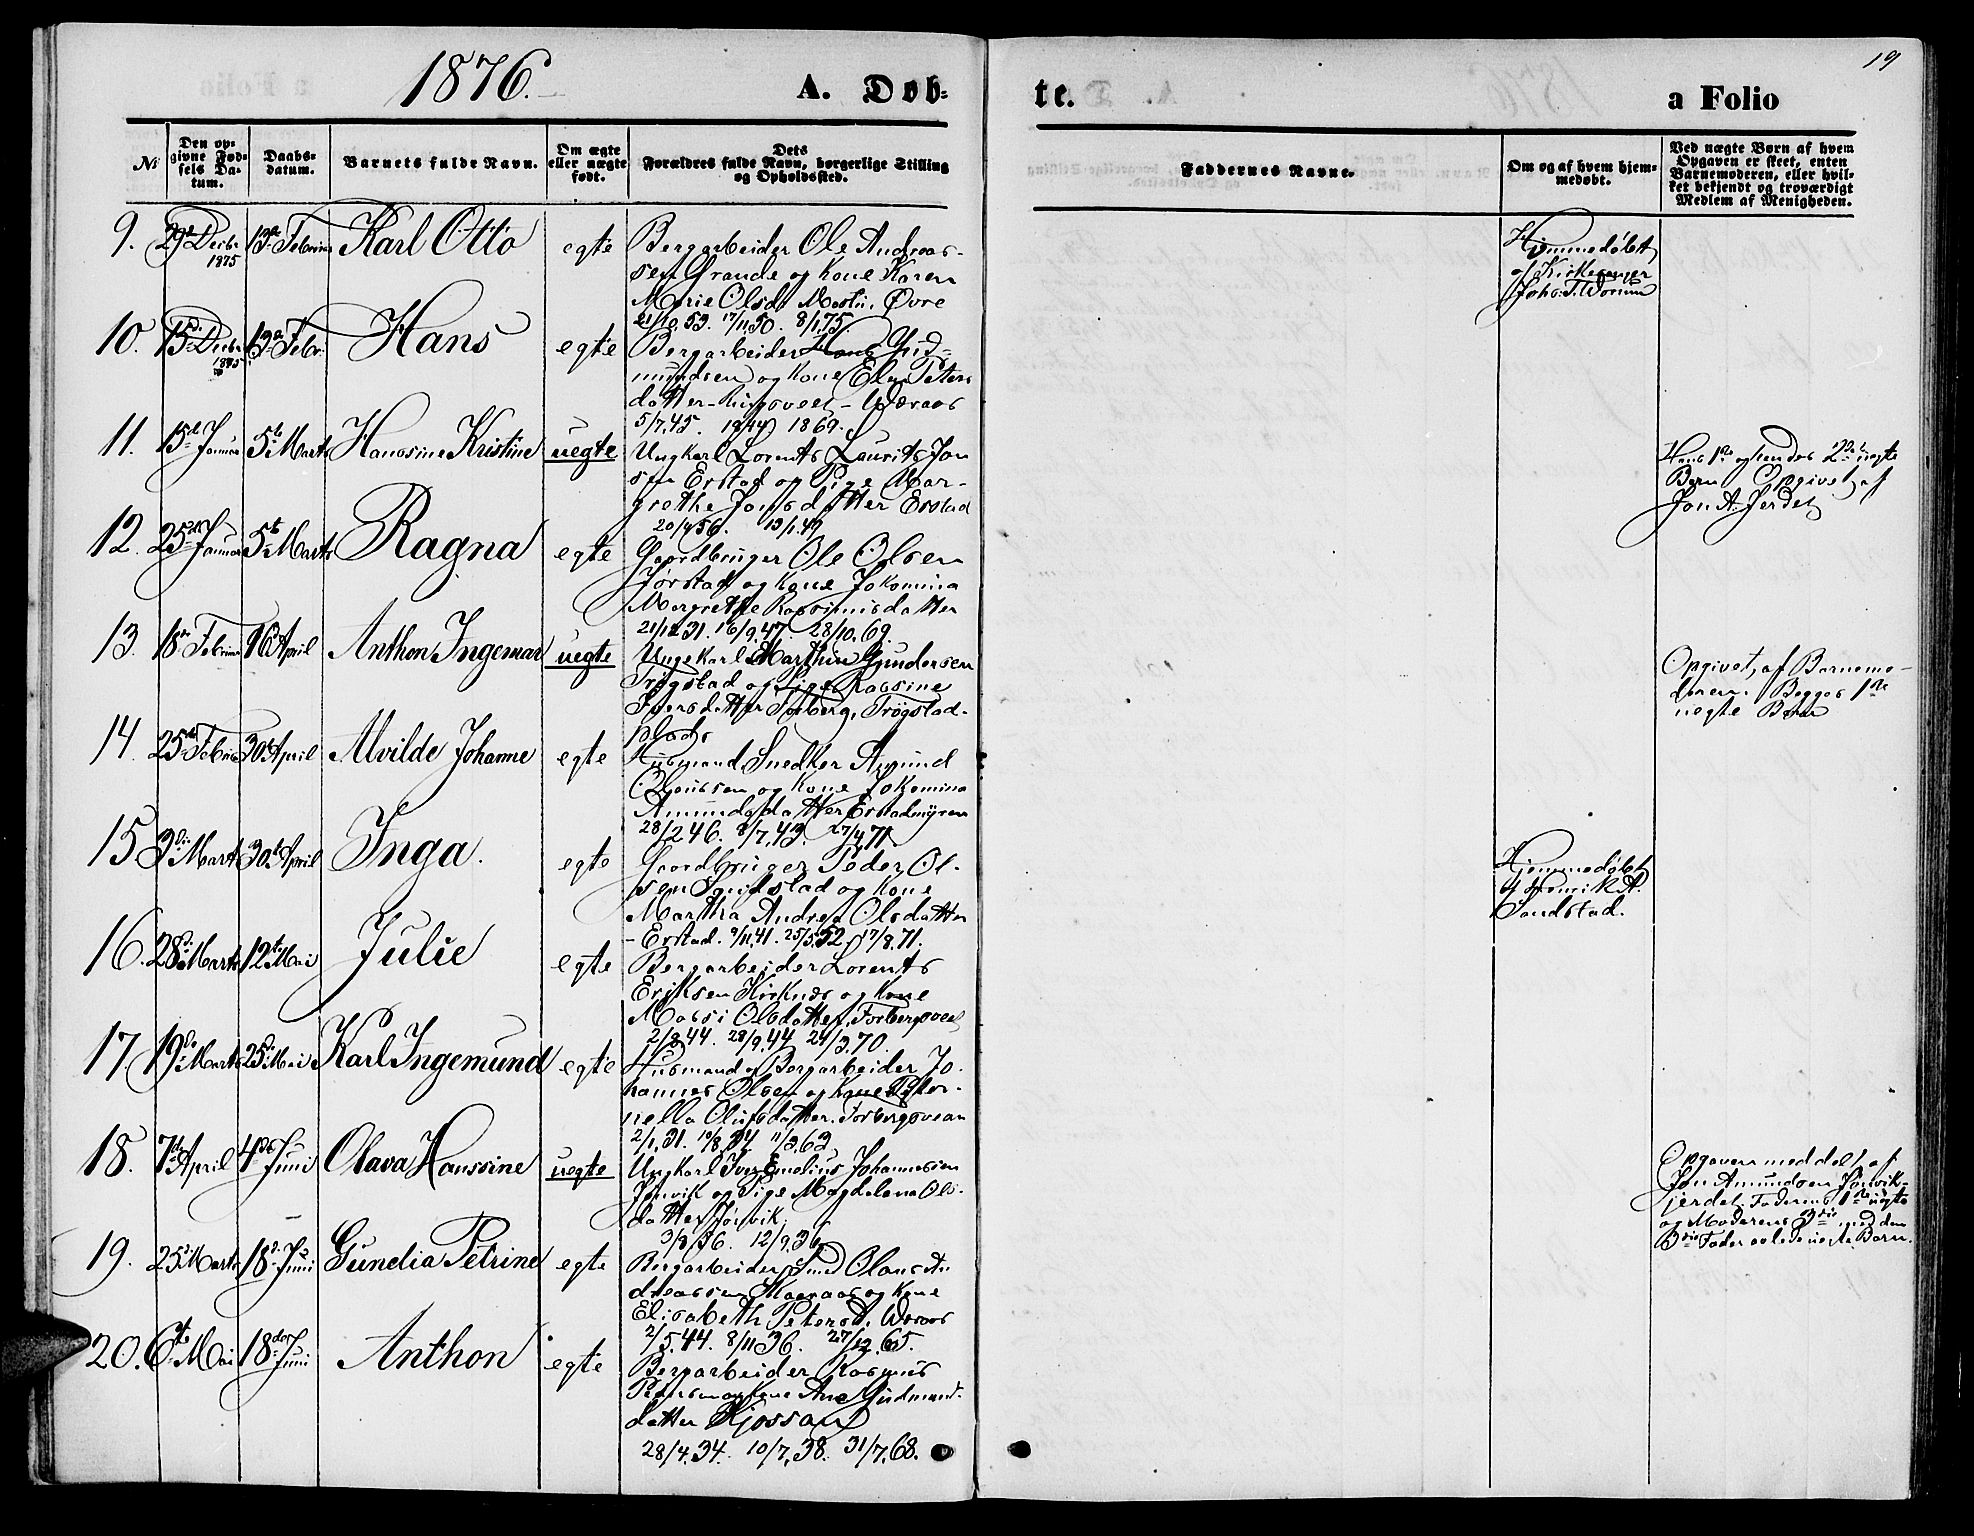 1876.
A. Døb-
te.
a Folio
19
No
Den op-
givne Fød-
sels Da-
tum.
Daabs-
datum.
Barnets fulde Navn.
Om ægte
eller uægte
født.
Dets
Forældres fulde Navn, borgerlige Stilling
og Opholdssted.
Faddernes Navne.
Om og af hvem hjem-
medøbt.
Ved uægte Børn af hvem
Opgaven er skeet, enten
Barnemoderen, eller hvil-
ket bekjendt og troværdigt
Medlem af Menigheden.
9. 29de Decbr 1875 13de Februar Karl Otto egte
Bergarbeider Ole Andreas-
sen Grande og Kone Karen
Marie Olsdr Mostu, Øvre
21/10,53. 17/11,50. 8/1,75.
Hjemmedøbt
af Kirkesanger
10. 15de Decbr 1875 13de Febr: Hans egte
Bergarbeider Hans Gud-
mundsen og Kone Elen Peters
datter
5/7,45. 1869.
11. 15de Januar 5te Marts Hanssine Kristine uegte
Ungkarl Lorents Laurits Jon
sen Erstad og Pige Mar-
grethe Jonsdatter Erstad
20/4 56. 13/1.49
Hans 1ste og hendes 2det uegte
Barn Opgivet af
Jon A. Jerdet
12. 25de Januar 5te Marts Ragna egte
Gaardbruger Ole Olsen
Jørstad og Kone Jokomina
Margrethe Rasmusdatter
21/12 31. 16/9,47. 28/10.69.
13. 18de Februar 16de April Anthon Ingemar uegte
Ungekarl Marthin Gundersen
Trøgstad og Pige Rassine
Iversdatter Forberg, Trøgstad-
plads
Opgivet af Barnemo-
deren. Begges 1ste
uegte Barn
14. 25de Februar 30te April Alvilde Johanne egte
Husmand Snedker Amund
Olaussen og Kone Jokomina
Amundsdatter Erstadmyren
28/2 46. 8/7,43. 27/4,71
15 3die Marts 30te April Inga. egte
Gaardbruger Peder Ol-
sen Sandstad og Kone
Martha Andrea Olsdatter
- Erstad. 9/11,41. 25/5,52. 17/8.71.
Hjemmedøbt
af Henrik A.
Sandstad.
16. 28de Marts 12te Mai Julie egte
Bergarbeider Lorents
Eriksen Kirknes og Kone
Massi Olsdatter, Forbergsveet
2/8.44. 28/9.44. 29/3.70.
17. 19de Marts 25de Mai Karl Ingemund egte
Husmand og Bergarbeider Jo-
hannes Olsen og Kone Peter-
nella Olufsdatter. Forbergsvean
2/1,31. 10/8,34. 11/3,63.
18. 7de April 4de Juni Olava Hanssine uegte
Ungkarl Iver Emelius Johannessen
Jønvik og Pige Magdelena Ols-
datter Jønvik.
3/8,56. 12/9,36
Opgaven meddelt af
Jon Amundsen Jønvik-
jerdet. Faderens 1ste uegte
og Moderens 3die med den
3die Fader avlede uegte Barn.
19. 25de Marts 18de Juni Gunelia Petrine egte
Bergarbeider, Smed Olaus An
dreassen og Kone
Elisabeth Petersd.
2/5.44. 8/11 36. 27/12.65.
20. 6te Mai 18de Juni Anthon egte
Bergarbeider Rasmus
Petersen og Kone Ane Gudmund-
datter Kjossan
28/4.34. 10/7,38. 31/7,68.